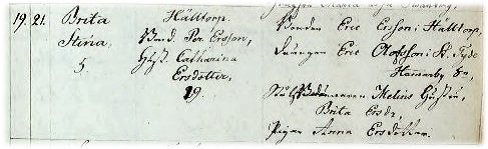 19. 21. Brita
Stina,
5.
Hälltorp.
Bond. Per Ersson,
Hust. Catharina
Ersdotter,
29.
Bonden Eric Ersson i Hälltorp,
Drängen Eric Olofsson i
Hamarby Sn,
Melins Hustru,
Brita Ersdr,
Pigan Anna Ersdotter.